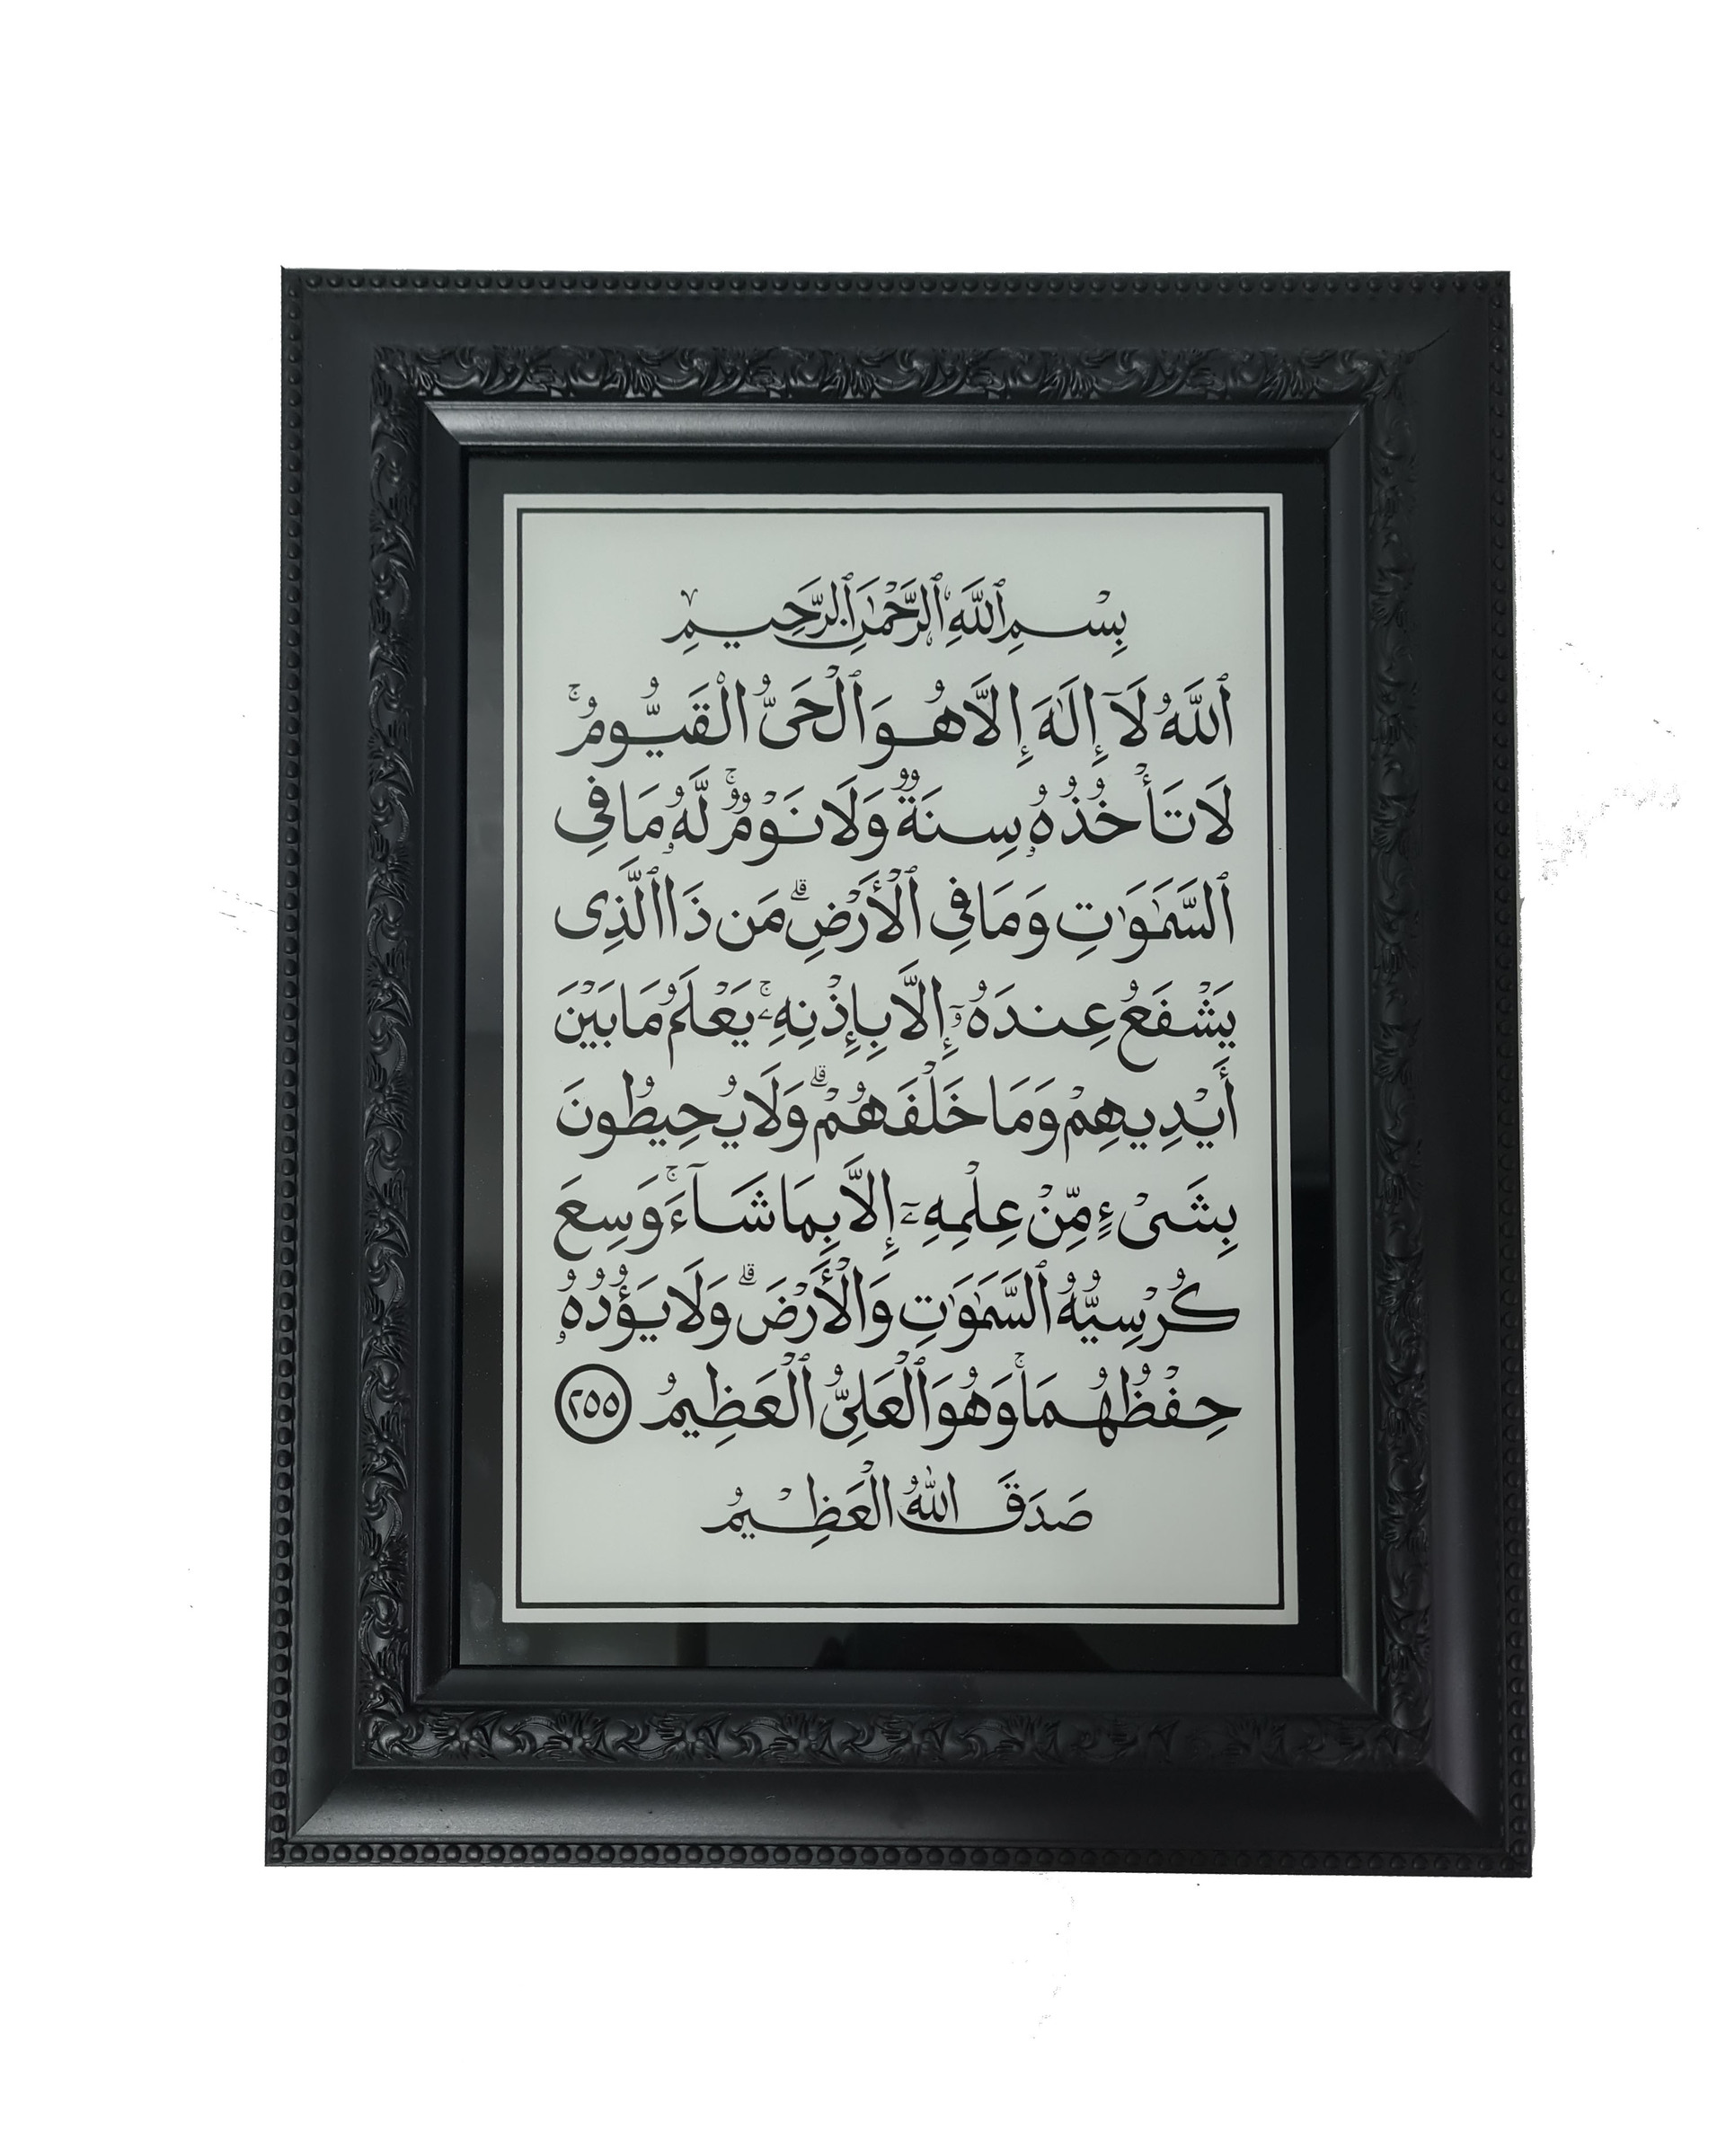 بِسْمِ ٱللَّهِ ٱلرَّحْمَٰنِ ٱلرَّحِيمِ
ٱللَّهُ لَآ إِلَٰهَ إِلَّا هُوَ ٱلْحَىُّ الْقَيُّومُ ۚ
لَا تَأْخُذُهُۥ سِنَةٌ وَلَا نَوْمٌ ۚ لَّهُۥ مَا فِى
ٱلسَّمَٰوَٰتِ وَمَا فِى ٱلْأَرْضِ ۗ مَن ذَا ٱلَّذِى
يَشْفَعُ عِندَهُۥٓ إِلَّا بِإِذْنِهِۦ ۚ يَعْلَمُ مَا بَيْنَ
أَيْدِيهِمْ وَمَا خَلْفَهُمْ ۗ وَلَا يُحِيطُونَ
بِشَىْءٍ مِّنْ عِلْمِهِۦٓ إِلَّا بِمَا شَآءَ ۚ وَسِعَ
كُرْسِيُّهُ ٱلسَّمَٰوَٰتِ وَالْأَرْضَ ۗ وَلَا يَـُٔودُهُۥ
حِفْظُهُمَا ۚ وَهُوَ ٱلْعَلِىُّ ٱلْعَظِيمُ ٢٥٥
صَدَقَ اللهُ الْعَظِيْمُ